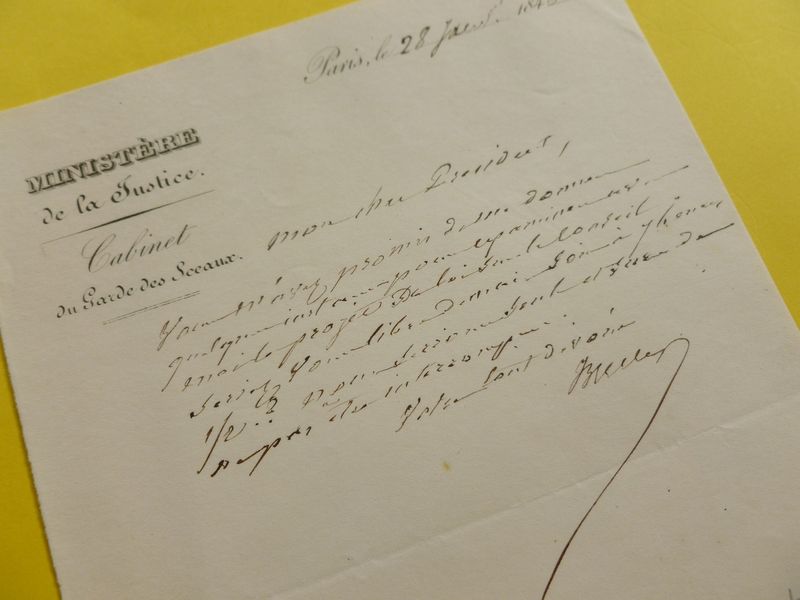 Paris, le 28
MINISTÈRE
de la Justice.
Cabinet
du Garde des Sceaux.
mon cher Président,
Vous m'avez promis de me donner
quelques instans pour examiner avec
moi le projet de loi sur le Conseil
seriez vous libre demain soir à 7 heures
1/2 ? nous serions seuls et surs de
n pas être interrompus.
Votre tout dévoué